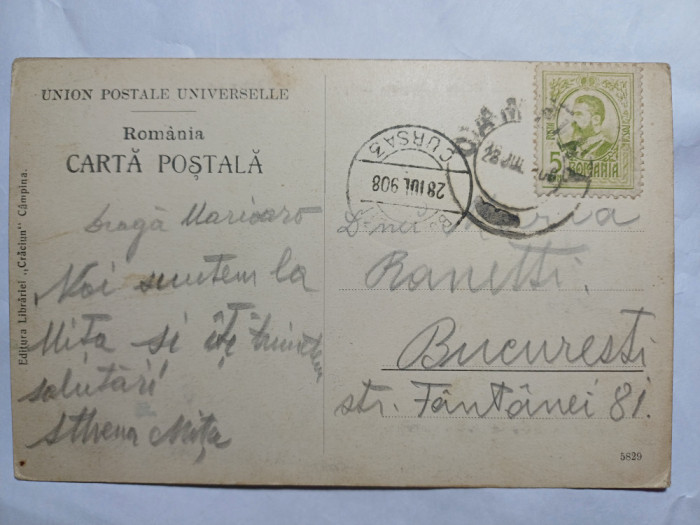 UNION POSTALE UNIVERSELLE
România
CARTĂ POȘTALĂ
Editura Librăriei „Crăciun” Câmpina.
Dragă Marioaro
Noi suntem la
Mița si îți trimetem
salutări
Athena Mița
CURSA 3
28 IUL 908
28 JUL 908
5
ROMANIA
Maria
Ranetti.
Bucuresti
str. Fântânei 81.
5829